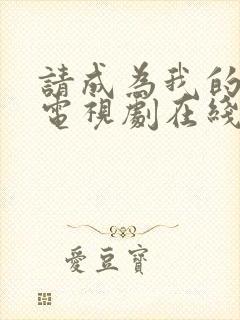 請成為我的
電視劇在綫
愛豆寶